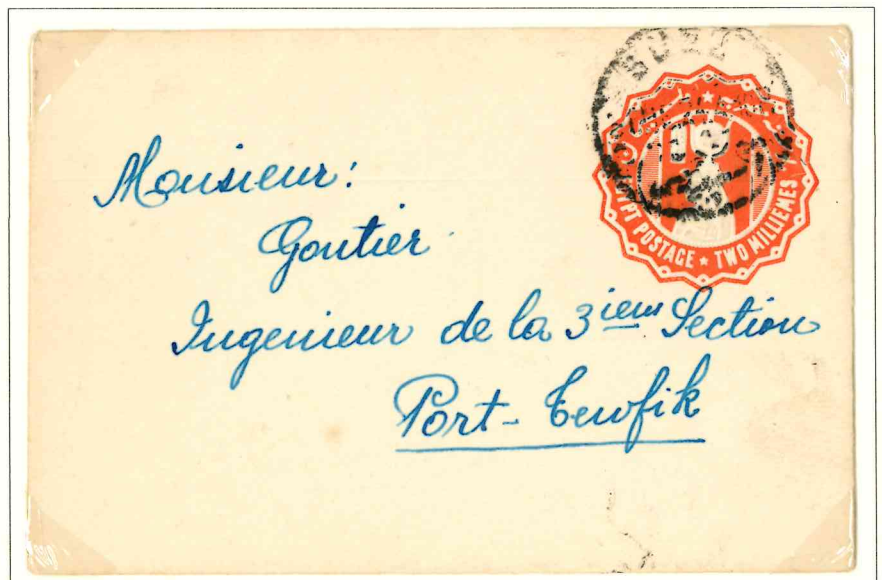 SUEZ
EGYPT POSTAGE ★ TWO MILLIEMES
Monsieur:
Goutier
Ingenieur de la 3ieme Section
Port-Tewfik